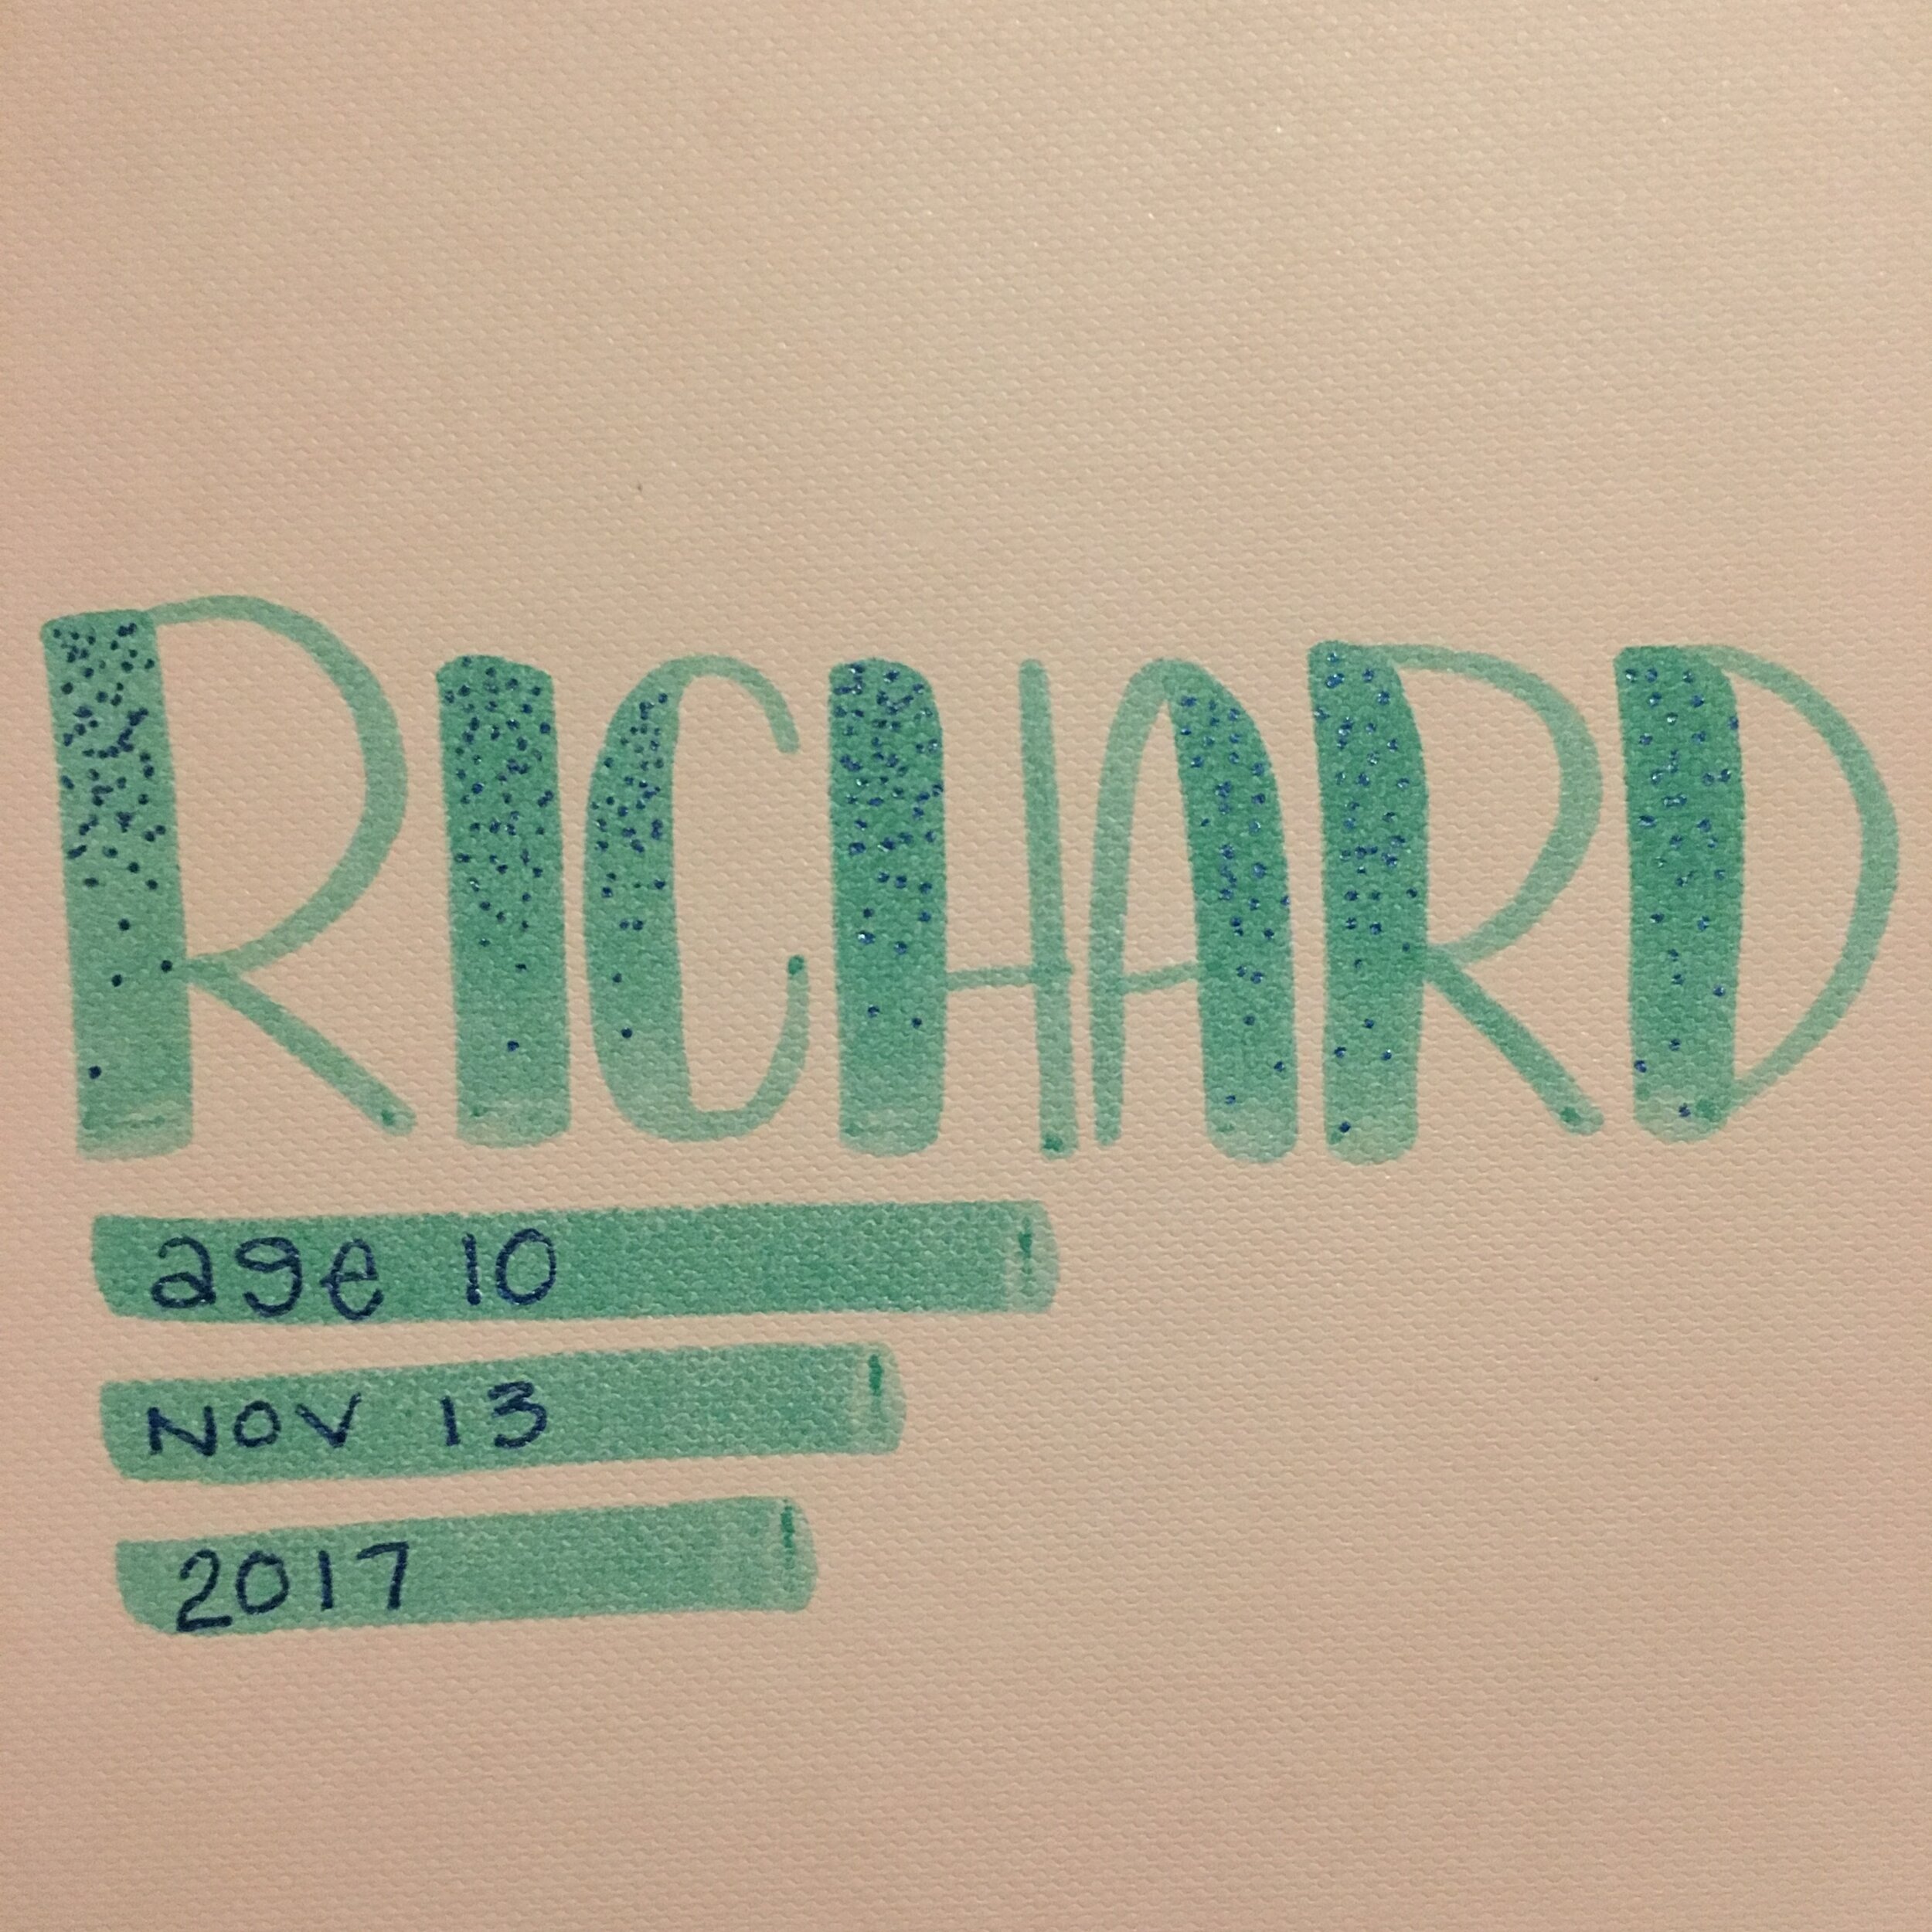 RICHARD
age 10
NOV 13
2017